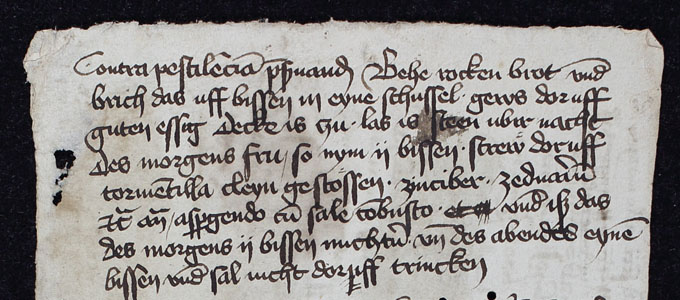 Contra pestile͞cia͞ p͞sʒuand Behe rocken brot vnd
brich das uff bissen in eyne schussel · gews doruff
guten essig decke is zu · las is steen ubir nacht
des morgens fru / so nym ii bissen · strew doruff
tormentilla cleyn gestossen · zinciber · zeduariu͞
an͞ / asp͞gendo cu͞ sale co͞busto · vnd iß das
des morgens ii bissen nuchtu͞ · vn͞ des abendes eyne͞
bissen vnd sal nicht doruff trincken